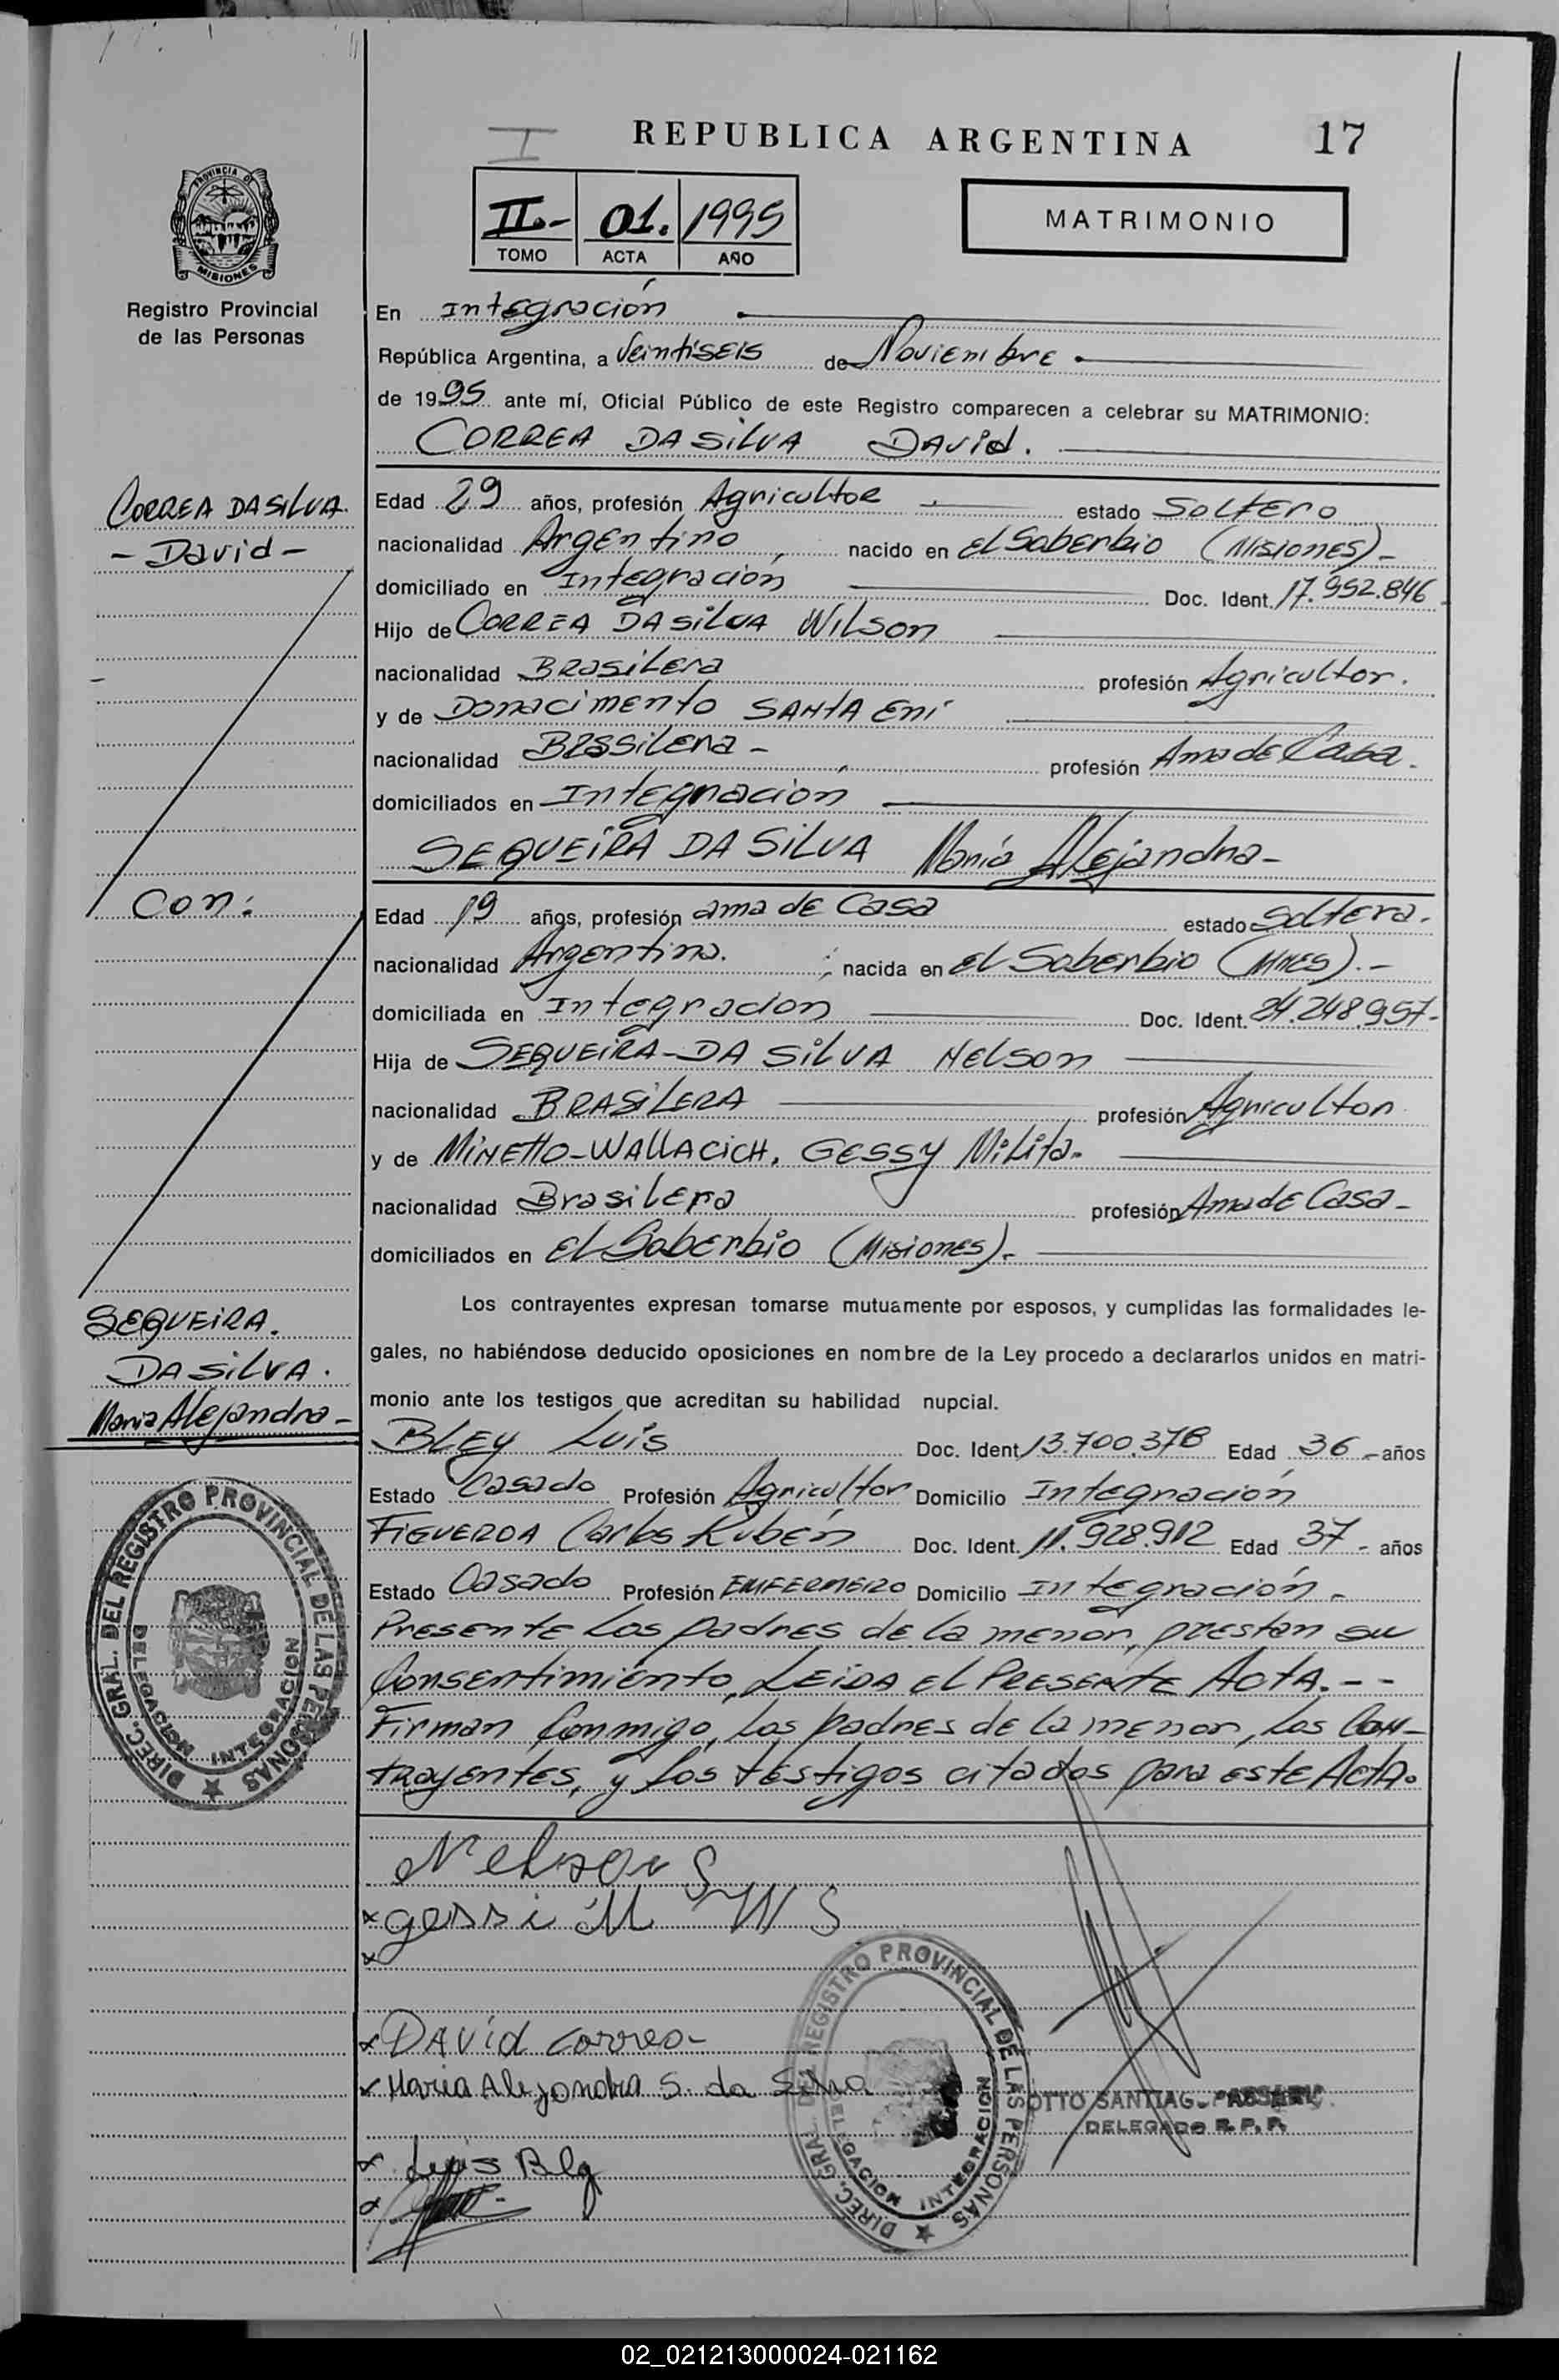 REPUBLICA ARGENTINA 17
I
PROVINCIA DE
MISIONES
Registro Provincial
de las Personas
II.- 01. 1995
TOMO ACTA AÑO
MATRIMONIO
En Integración
República Argentina, a Veintiseis de Noviembre
de 1995 ante mí, Oficial Público de este Registro comparecen a celebrar su MATRIMONIO:
CORREA DASILVA DAVid.
CORREA DASILVA.
- David -
Edad 29 años, profesión Agricultor estado Soltero
nacionalidad Argentino, nacido en El Soberbio (Misiones)-
domiciliado en Integración Doc. Ident. 17.952.846
Hijo de CORREA DASILVA Wilson
nacionalidad Brasilera profesión Agricultor.
y de Donacimento SANTA Eni
nacionalidad Brasilera - profesión Ama de Casa.
domiciliados en Integración
SEQUEIRA DA SILVA María Alejandra-
Con:
Edad 19 años, profesión ama de Casa estado Soltera.
nacionalidad Argentina. ; nacida en El Soberbio (MNES).-
domiciliada en Integracion Doc. Ident. 24.248.957-
Hija de SEQUEIRA-DA SILVA NELSON
nacionalidad BRASILERA profesión Agricultor
y de MINETTO-WALLACICH, GESSY Milita.
nacionalidad Brasilera profesión Ama de Casa-
domiciliados en El Soberbio (Misiones).-
SEQUEIRA.
DASILVA.
Maria Alejandra-
Los contrayentes expresan tomarse mutuamente por esposos, y cumplidas las formalidades le-
gales, no habiéndose deducido oposiciones en nombre de la Ley procedo a declararlos unidos en matri-
monio ante los testigos que acreditan su habilidad nupcial.
BLEY Luis Doc. Ident. 13.700.378 Edad 36 - años
Estado Casado Profesión Agricultor Domicilio Integración
FIGUEROA Carlos Rubén Doc. Ident. 11.928.912 Edad 37 - años
Estado Casado Profesión ENFERMERO Domicilio Integración-
Presente Los padres de la menor, prestan su
Consentimiento, LEIDA el PRESENTE ACTA. - -
Firman Conmigo, Los padres de la menor, Los Con-
trayentes, y Los testigos citados para este Acta.
DIREC. GRAL. DEL REGISTRO PROVINCIAL DE LAS PERSONAS
DELEGACION INTEGRACION
Nelson S
x gessi M W S
x
x DAVid correa-
x Maria Alejandra S. da Silva
DIREC. GRAL. DEL REGISTRO PROVINCIAL DE LAS PERSONAS
DELEGACION INTEGRACION
OTTO SANTIAGO
DELEGADO R. P. P.
x Luis Bley
x
02_021213000024-021162